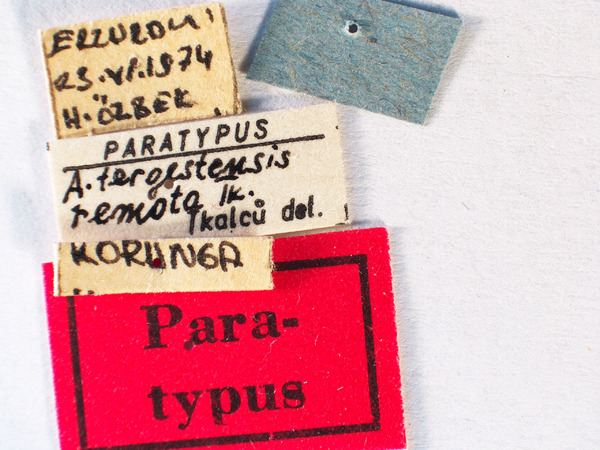 ERZURUM
23.VI.1974
H.ÖZBEK
PARATYPUS
A.tergestensis
remota Ik.
Tkalců del.
KORUNGA
Para-
typus